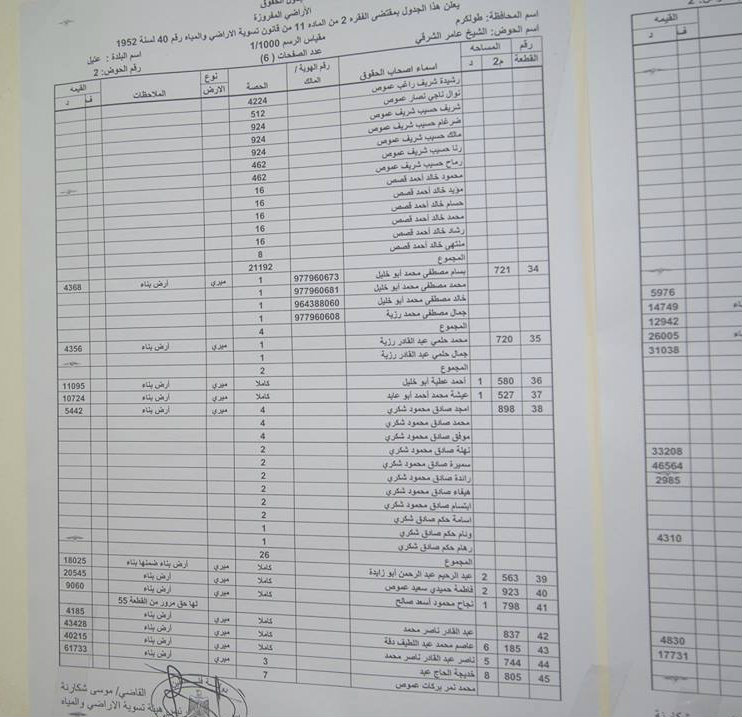 جدول الحقوق
الأراضي المفروزة
يعلن هذا الجدول بمقتضى الفقره 2 من الماده 11 من قانون تسوية الاراضي والمياه رقم 40 لسنة 1952
اسم المحافظة: طولكرم مقياس الرسم 1/1000 اسم البلدة : عتيل
اسم الحوض: الشيخ عامر الشرقي عدد الصفحات ( 6 ) رقم الحوض: 2
رقم القطعة المساحه م2 د اسماء اصحاب الحقوق رقم الهوية / المالك الحصة نوع الارض الملاحظات القيمه ف د
رشيدة شريف راغب عموص
نوال ناجي نصار عموص 4224
شريف حسيب شريف عموص 512
ضرغام حسيب شريف عموص 924
مالك حسيب شريف عموص 924
رنا حسيب شريف عموص 924
رماح حسيب شريف عموص 462
محمود خالد أحمد قصص 462
مؤيد خالد أحمد قصص 16
حسام خالد أحمد قصص 16
محمد خالد أحمد قصص 16
رشاد خالد أحمد قصص 16
منتهى خالد أحمد قصص 16
المجموع 8
21192
34 721 بسام مصطفى محمد أبو خليل 977960673 1 ميري أرض بناء 4368
محمد مصطفى محمد أبو خليل 977960681 1
خالد مصطفى محمد أبو خليل 964388060 1
جمال مصطفى محمد رزية 977960608 1
المجموع 4
35 720 محمد حلمي عبد القادر رزية 1 ميري أرض بناء 4356
جمال حلمي عبد القادر رزية 1
المجموع 2
36 580 1 أحمد عطية أبو خليل كاملا ميري أرض بناء 11095
37 527 1 عيشة محمد أحمد أبو عابد كاملا ميري أرض بناء 10724
38 898 امجد صادق محمود شكري 4 ميري أرض بناء 5442
محمد صادق محمود شكري 4
موفق صادق محمود شكري 4
نهلة صادق محمود شكري 2
سميرة صادق محمود شكري 2
رائدة صادق محمود شكري 2
هيفاء صادق محمود شكري 2
ابتسام صادق محمود شكري 2
اسامة حكم صادق شكري 2
ونام حكم صادق شكري 1
رهام حكم صادق شكري 1
المجموع 26
39 563 2 عبد الرحيم عبد الرحمن أبو زايدة كاملا ميري أرض بناء ضمنها بناء 18025
40 923 2 فاطمة حميدي سعيد عموص كاملا ميري أرض بناء 20545
41 798 1 نجاح محمود أسعد صالح كاملا ميري أرض بناء 9060
لها حق مرور من القطعة 55
42 837 عبد القادر ناصر محمد كاملا ميري أرض بناء 4185
43 185 6 عاصم محمد عبد اللطيف دقة كاملا ميري أرض بناء 43428
44 744 5 ناصر عبد القادر ناصر محمد كاملا ميري أرض بناء 40215
45 805 8 خديجة الحاج عبد 3 ميري أرض بناء 61733
محمد نمر بركات عموص 7
القاضي/ موسى شكارنة
هيئة تسوية الاراضي والمياه
القيمه
ف د
5976
14749
12942
26005
31038
33208
46564
2985
4310
4830
17731